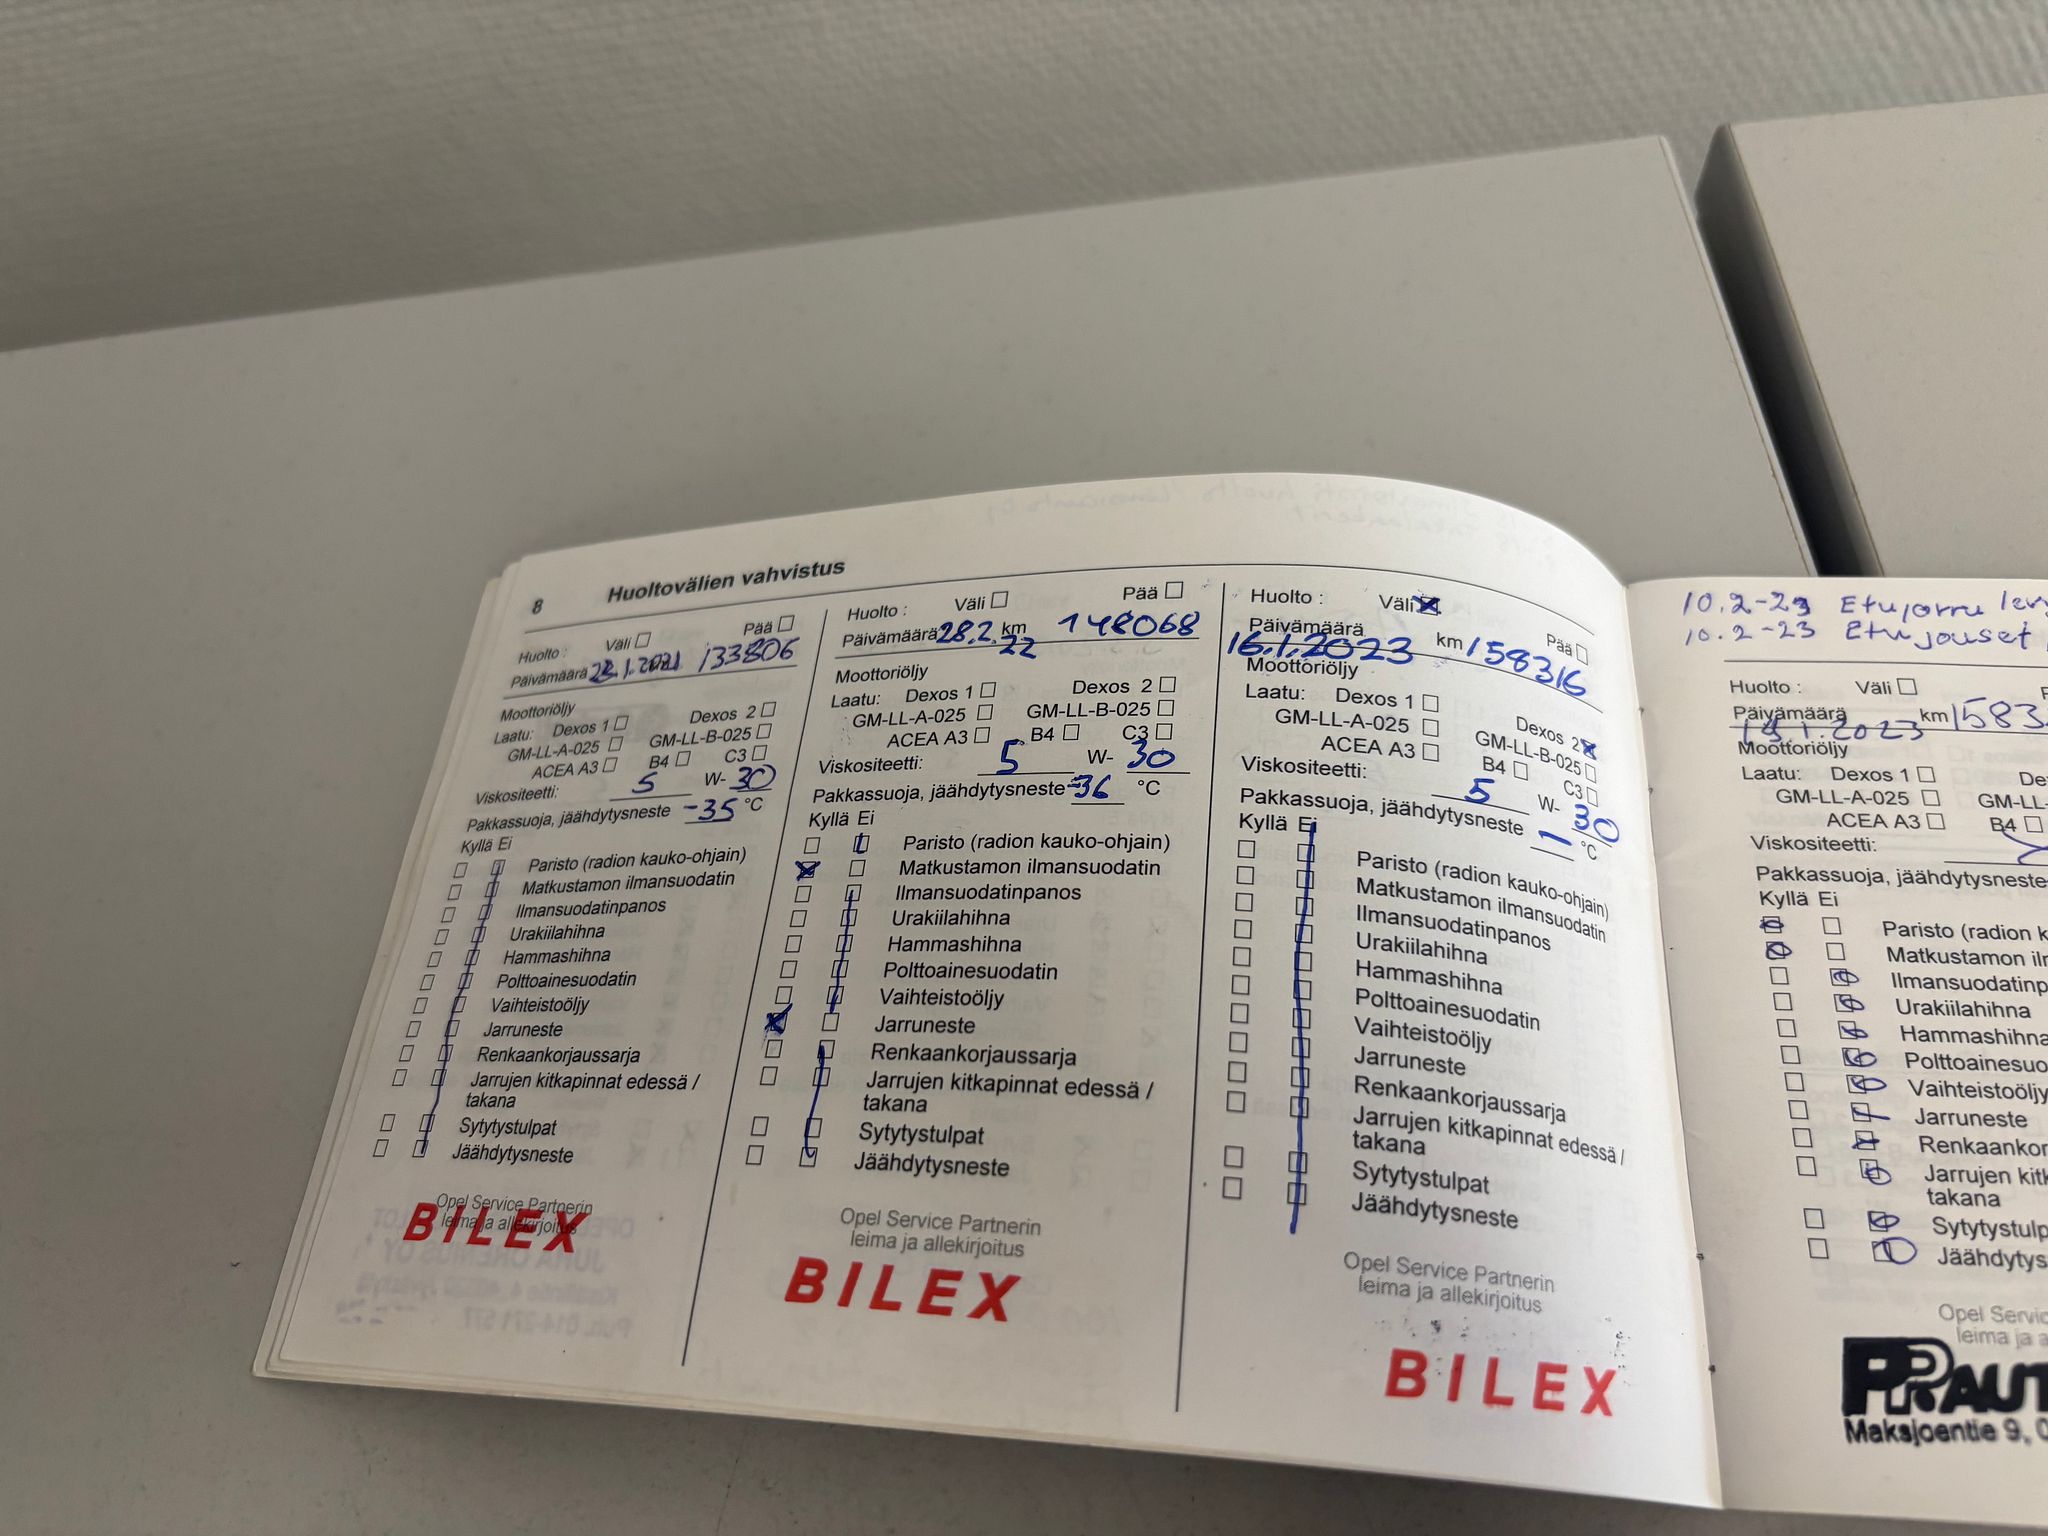 8 Huoltovälien vahvistus
Huolto : Väli Pää
Päivämäärä 28.1.2021 km 133806
Moottoriöljy
Laatu: Dexos 1 Dexos 2
GM-LL-A-025 GM-LL-B-025
ACEA A3 B4 C3
Viskositeetti: 5 W- 30
Pakkassuoja, jäähdytysneste -35 °C
Kyllä Ei
Paristo (radion kauko-ohjain)
Matkustamon ilmansuodatin
Ilmansuodatinpanos
Urakiilahihna
Hammashihna
Polttoainesuodatin
Vaihteistoöljy
Jarruneste
Renkaankorjaussarja
Jarrujen kitkapinnat edessä /
takana
Sytytystulpat
Jäähdytysneste
Opel Service Partnerin
leima ja allekirjoitus
BILEX
Huolto : Väli Pää
Päivämäärä 28.2. km 148068
22
Moottoriöljy
Laatu: Dexos 1 Dexos 2
GM-LL-A-025 GM-LL-B-025
ACEA A3 B4 C3
Viskositeetti: 5 W- 30
Pakkassuoja, jäähdytysneste -36 °C
Kyllä Ei
Paristo (radion kauko-ohjain)
Matkustamon ilmansuodatin
Ilmansuodatinpanos
Urakiilahihna
Hammashihna
Polttoainesuodatin
Vaihteistoöljy
Jarruneste
Renkaankorjaussarja
Jarrujen kitkapinnat edessä /
takana
Sytytystulpat
Jäähdytysneste
Opel Service Partnerin
leima ja allekirjoitus
BILEX
Huolto : Väli Pää
Päivämäärä km 158316
16.1.2023
Moottoriöljy
Laatu: Dexos 1 Dexos 2
GM-LL-A-025 GM-LL-B-025
ACEA A3 B4 C3
Viskositeetti: 5 W- 30
Pakkassuoja, jäähdytysneste - °C
Kyllä Ei
Paristo (radion kauko-ohjain)
Matkustamon ilmansuodatin
Ilmansuodatinpanos
Urakiilahihna
Hammashihna
Polttoainesuodatin
Vaihteistoöljy
Jarruneste
Renkaankorjaussarja
Jarrujen kitkapinnat edessä /
takana
Sytytystulpat
Jäähdytysneste
Opel Service Partnerin
leima ja allekirjoitus
BILEX
10.2-23 Etujarru
10.2-23 Etujouset
Huolto : Väli
Päivämäärä km 1583
.1.2023
Moottoriöljy
Laatu: Dexos 1 De
GM-LL-A-025 GM-LL-
ACEA A3 B4
Viskositeetti:
Pakkassuoja, jäähdytysneste
Kyllä Ei
Paristo (radion k
Matkustamon ilm
Ilmansuodatinp
Urakiilahihna
Hammashihna
Polttoainesuo
Vaihteistoöljy
Jarruneste
Renkaankor
Jarrujen kitk
takana
Sytytystulp
Jäähdytys
Opel Servic
leima ja a
PRAUT
Maksjoentie 9, 0